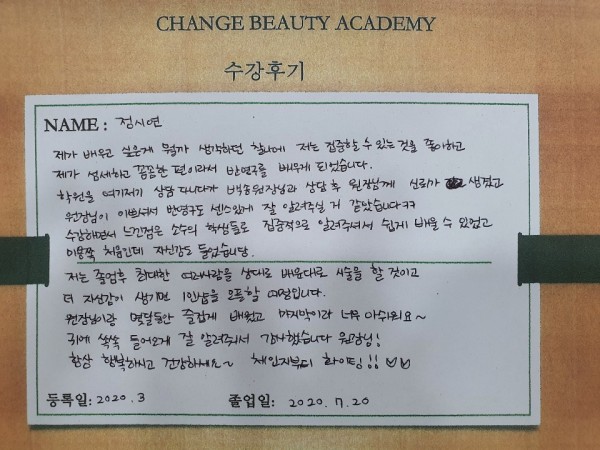 CHANGE BEAUTY ACADEMY
수강후기
NAME : 정시연
제가 배우고 싶은게 뭘까 생각하던 찰나에 저는 집중할 수 있는것을 좋아하고
제가 섬세하고 꼼꼼한 편이라서 반영구를 배우게 되었습니다.
학원을 여기저기 상담 다니다가 박송원장님과 상담 후 원장님께 신뢰가 생겼고
원장님이 이쁘셔서 반영구도 센스있게 잘 알려주실 거 같았습니다ㅋㅋ
수강하면서 느낀점은 소수의 학생들로 집중적으로 알려주셔서 쉽게 배울 수 있었고
미용쪽 처음인데 자신감도 들었습니당.
저는 졸업후 최대한 여러사람을 상대로 배운대로 시술을 할 것이고
더 자신감이 생기면 1인샵을 오픈할 예정입니다.
원장님이랑 몇달동안 즐겁게 배웠고 마지막이라 너무 아쉬워요~
귀에 쏙쏙 들어오게 잘 알려주셔서 감사했습니다 원장님!
항상 행복하시고 건강하세요~ 체인지뷰티 화이팅!! ♡♡
등록일: 2020. 3
졸업일: 2020. 7. 20